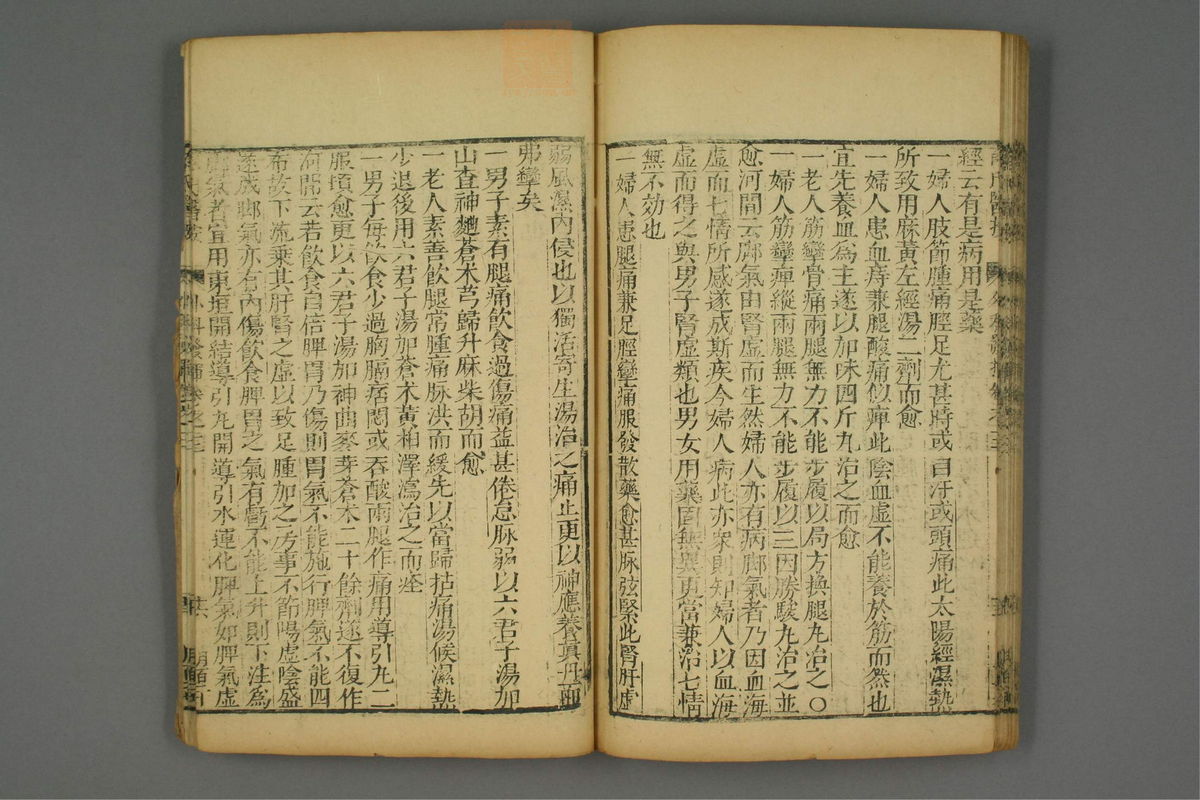 經云有是病用是藥
一婦人肢節腫痛脛足尤甚時或自汗或頭痛此太陽經濕熱
所致用麻黃左經湯二劑而愈
一婦人患血痔兼腿酸痛似痺此陰血虛不能養於筋而然也
宜先養血為主遂以加味四斤丸治之而愈
一老人筋攣骨痛兩腿無力不能步履以局方換腿丸治之○
一婦人筋攣痺縱兩腿無力不能步履以三因勝駿丸治之並
愈河間云脚氣由腎虛而生然婦人亦有病脚氣者乃因血海
虛而七情所感遂成斯疾今婦人病此亦眾則知婦人以血海
虛而得之與男子腎虛類也男女用藥固無異更當兼治七情
無不効也
一婦人患腿痛兼足脛攣痛服發散藥愈甚脉弦緊此腎肝虛
弱風濕內侵也以獨活寄生湯治之痛止更以神應養真丹而
弗攣矣
一男子素有腿痛飲食過傷痛益甚倦怠脉弱以六君子湯加
山查神麯蒼朮芎歸升麻柴胡而愈
一老人素善飲腿常腫痛脉洪而緩先以當歸拈痛湯候濕熱
少退後用六君子湯加蒼朮黃柏澤瀉治之而痊
一男子每飲食少過胸膈痞悶或吞酸兩腿作痛用導引丸二
服頃愈更以六君子湯加神曲麥芽蒼朮二十餘劑遂不復作
河間云若飲食自倍脾胃乃傷則胃氣不能施行脾氣不能四
布故下流乘其肝腎之虛以致足腫加之房事不節陽虛陰盛
遂成脚氣亦有內傷飲食脾胃之氣有虧不能上升則下注為
脚氣者宜用東垣開結導引丸開導引水運化脾氣如脾氣虛